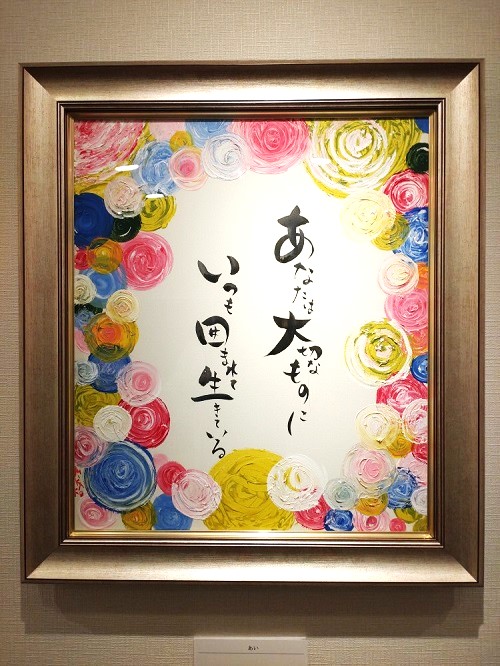 あなたは
大切な
ものに
いつも
囲まれて
生きている
あい